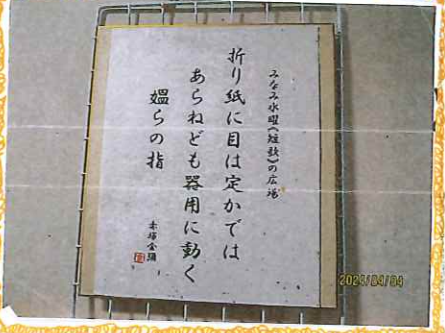 みなみ水曜《短歌》の広場
折り紙に目は定かでは
あらねども器用に動く
媼らの指
2024/04/04